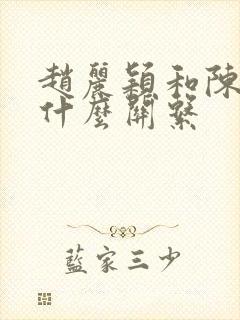 趙麗穎和陳
什麼關係
藍家三少